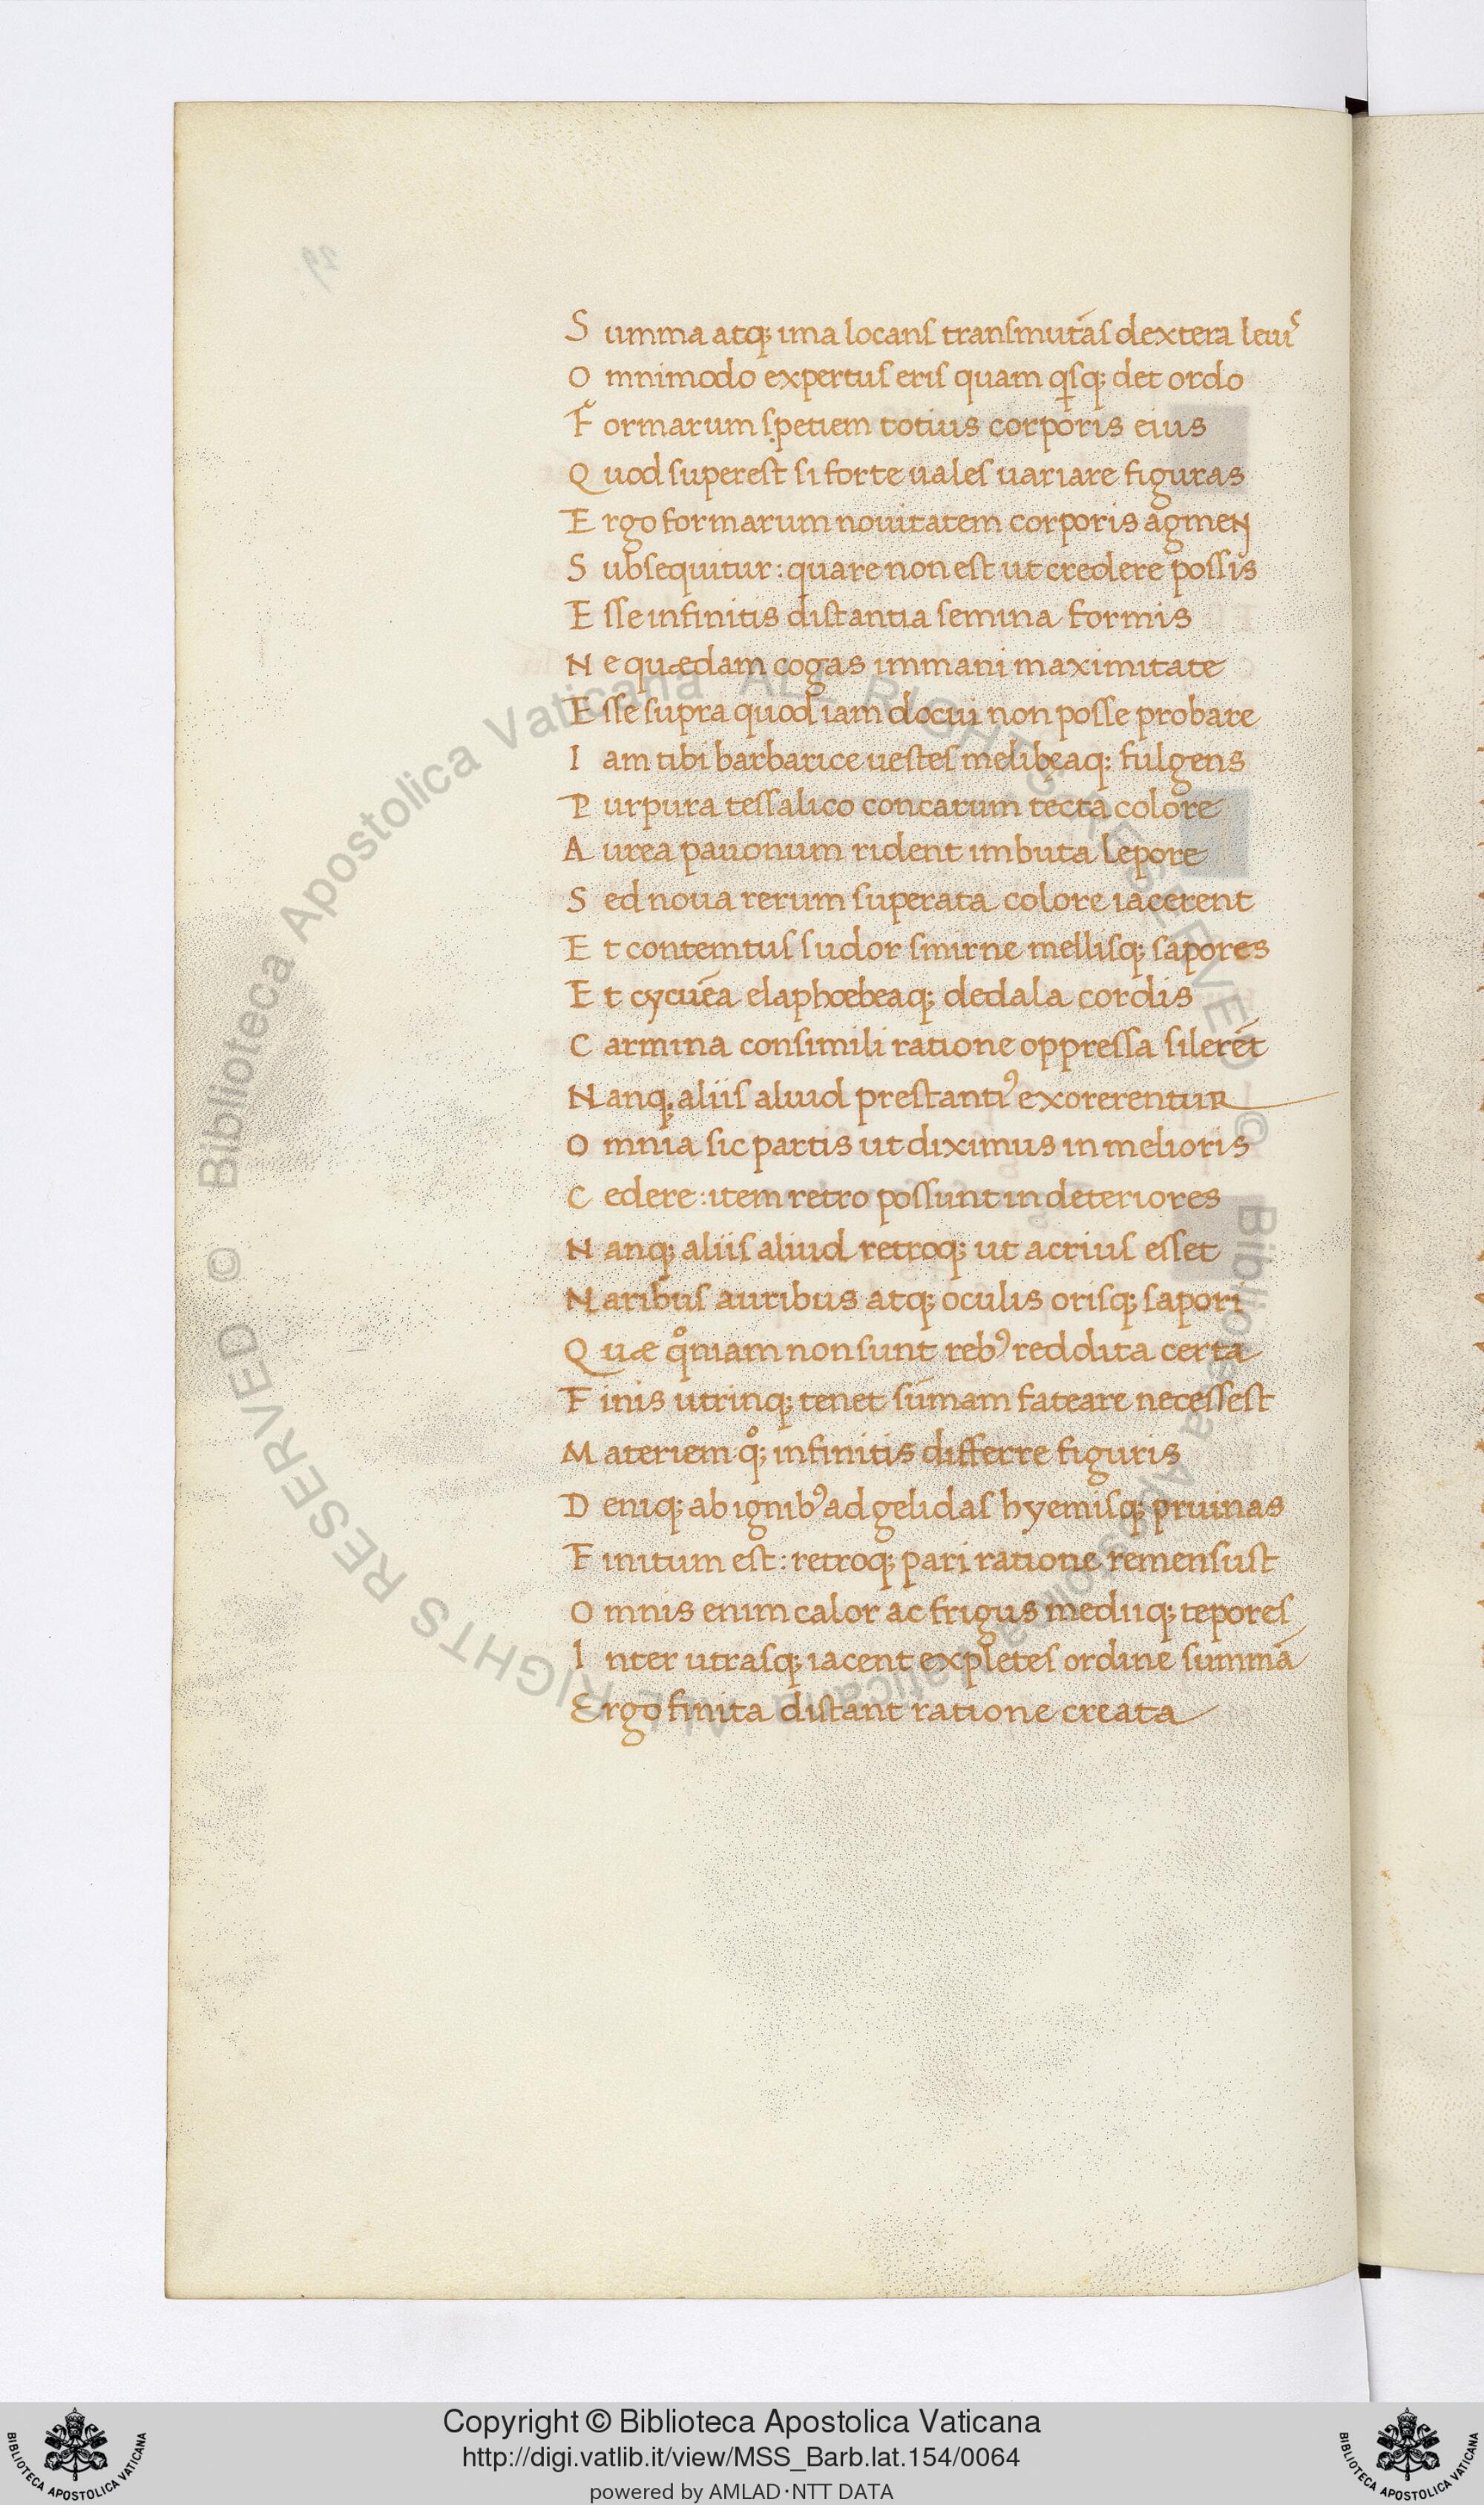 S umma atq; ima locans transmutās dextera leuis
O mnimodo expertus eris quam qisq; det ordo
F ormarum spetiem totius corporis eius
Q uod superest si forte uales uariare figuras
E rgo formarum nouitatem corporis agmen
S ubsequitur: quare non est ut credere possis
E sse infinitis distantia semina formis
N e quædam cogas immani maximitate
E sse supra quod iam docui non posse probare
I am tibi barbarice uestes melibeaq: fulgens
P urpura tessalico concarum tecta colore
A urea pauonum rident imbuta lepore
S ed noua rerum superata colore iacerent
E t contemtus sudor smirne mellisq; sapores
E t cycuēa elaphœbeaq; dedala cordis
C armina consimili ratione oppressa silerēt
N anq; aliis aluid prestantiꝰ exorerentur
O mnia sic partis ut diximus in melioris
C edere: item retro possunt in deteriores
N anq; aliis aliud retroq; ut actius esset
N aribus auribus atq; oculis orisq; sapori
Q uæ qͦniam non sunt rebꝰ reddita certa
F inis utrinq; tenet sūmam fateare necessest
M ateriem qͦ; infinitis differre figuris
D eniq; ab ignibꝰ ad gelidas hyemisq; pruinas
F initum est: retroq; pari ratione remensust
O mnis enim calor ac frigus mediiq; tepores
I nter utrasq; iacent expletes ordine summā
Ergo finita distant ratione creata
Copyright © Biblioteca Apostolica Vaticana
http://digi.vatlib.it/view/MSS_Barb.lat.154/0064
powered by AMLAD·NTT DATA
BIBLIOTECA APOSTOLICA VATICANA
BIBLIOTECA APOSTOLICA VATICANA
© Biblioteca Apostolica Vaticana ALL RIGHTS RESERVED © Biblioteca Apostolica Vaticana ALL RIGHTS RESERVED